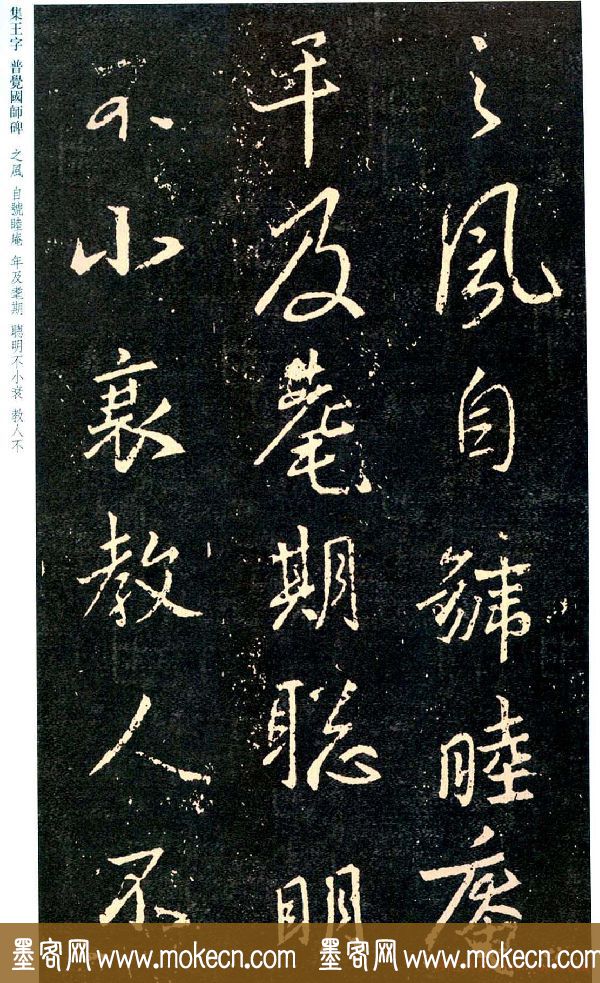 之風自號睦庵
年及耄期聰明
不小衰教人不
集王字 普覺國師碑 之風 自號睦庵 年及耄期 聰明不小衰 教人不
墨客网 www.mokecn.com 墨客网 www.mokecn.com